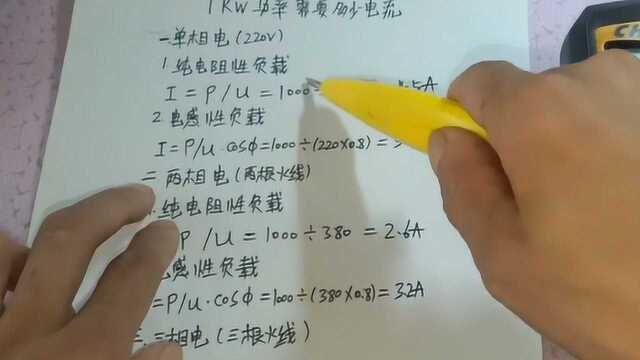 1KW功率需要多少电流
一单相电(220V)
1.纯电阻性负载
I=P/U=1000÷ .5A
2.电感性负载
I=P/U·cosΦ=1000÷(220×0.8)=
二两相电(两根火线)
纯电阻性负载
P/U=1000÷380=2.6A
感性负载
=P/U·cosΦ=1000÷(380×0.8)=3.2A
三.三相电(三根火线)
CH